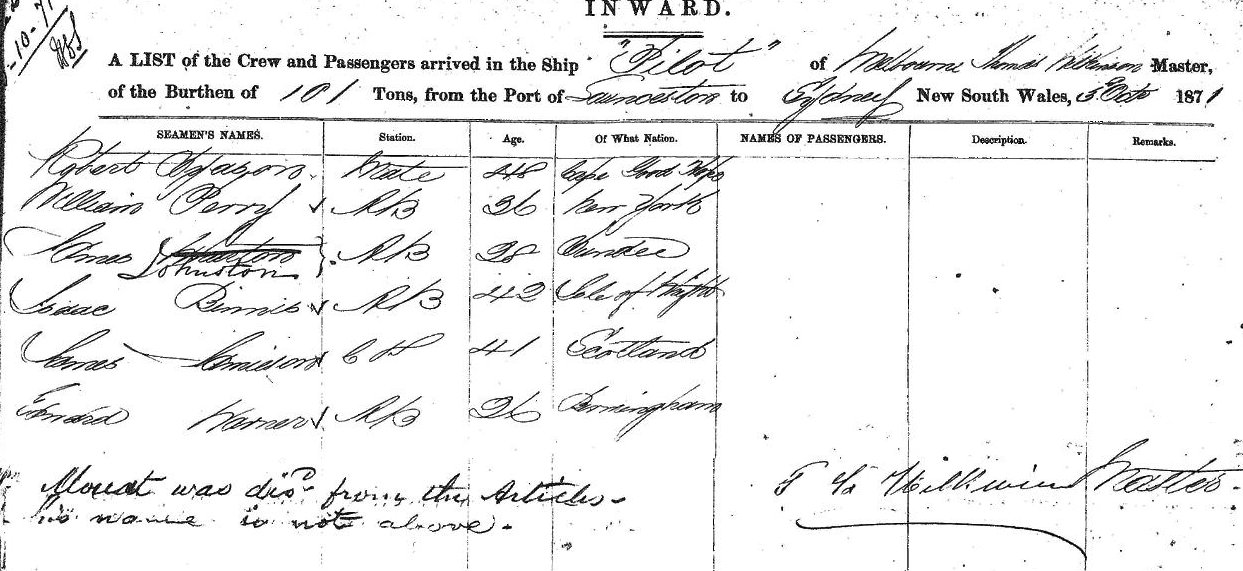 -10-71
INWARD.
A LIST of the Crew and Passengers arrived in the Ship "Pilot" of Melbourne Thomas Wilkinson Master,
of the Burthen of 101 Tons, from the Port of Launceston to Sydney New South Wales, 3 Octo 1871
SEAMEN'S NAMES. Station. Age. Of What Nation. NAMES OF PASSENGERS. Description. Remarks.
Robert Mate 48 Cape Good Hope
William Perry AB 36 New York
James Johnston AB 28 Dundee
Isaac Binnie AB 42 Isle of Wight
James Jamieson 41 Scotland
Edward Warner AB 26 Birmingham
Mouat was disd from the Articles
his name is not above.
Wilkinson Master.